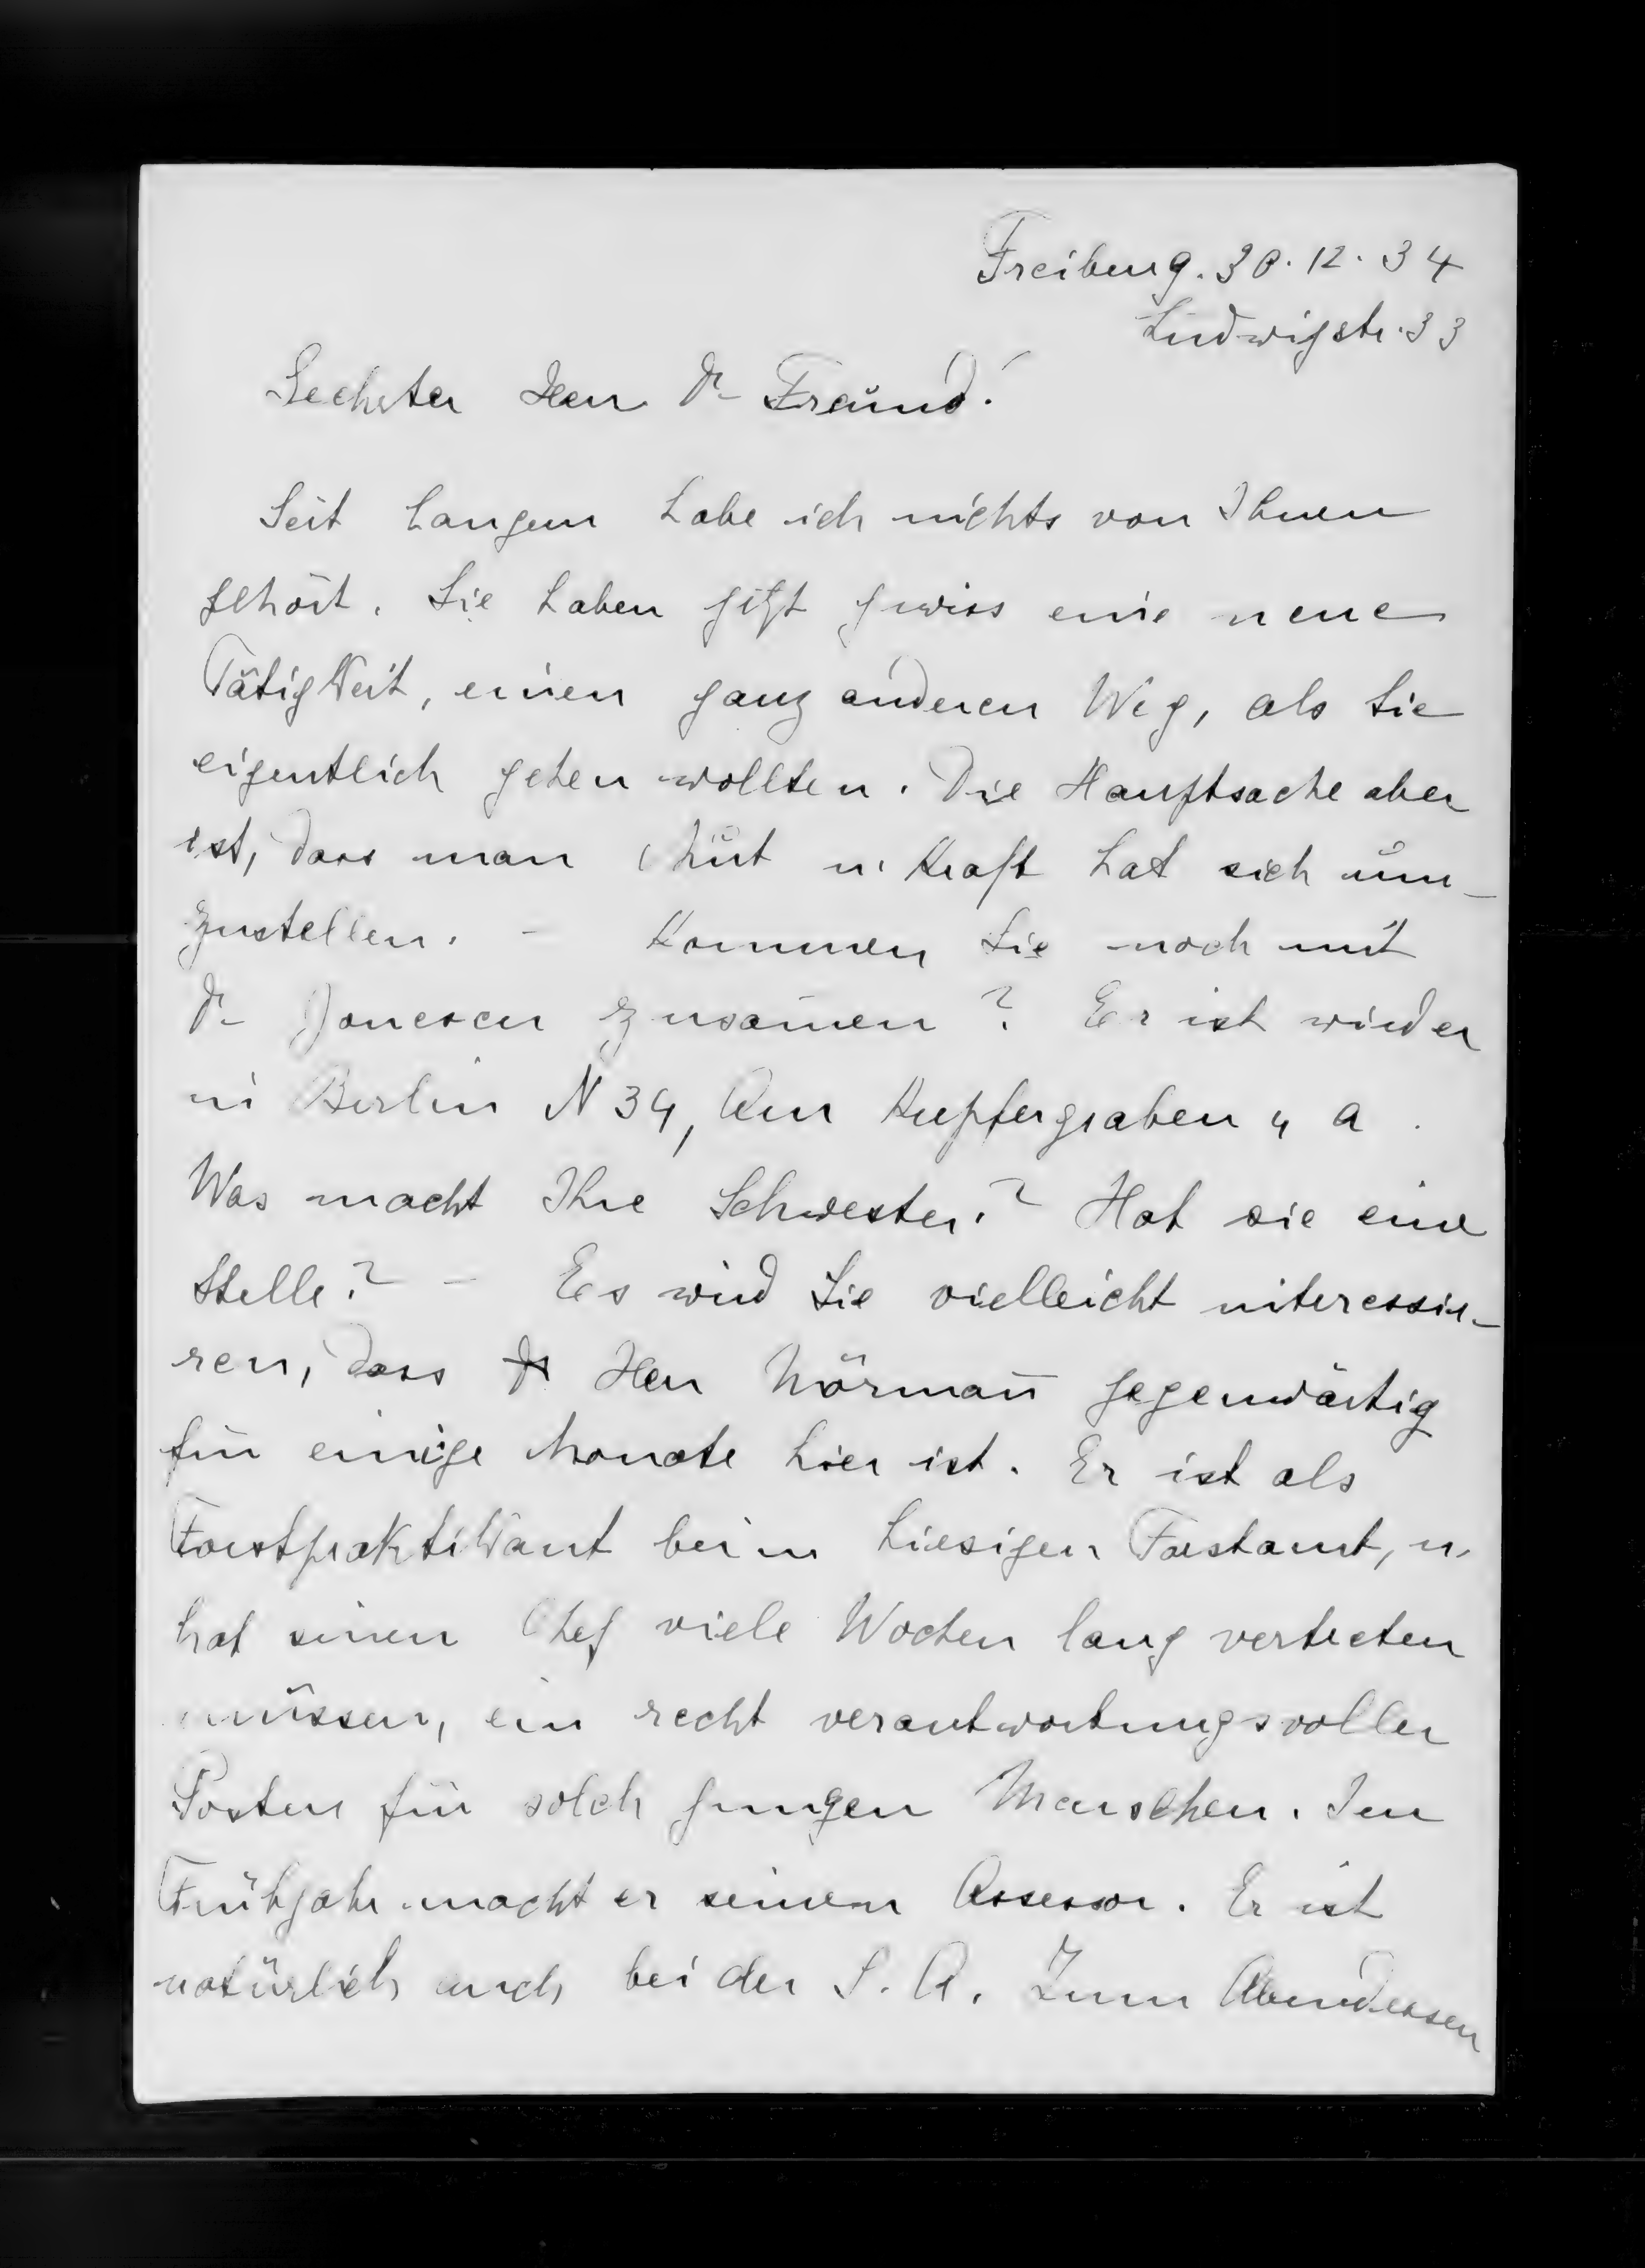 Freiburg. 30. 12. 34
Ludwigstr. 33
Geehrter Herr Dr Freund!
Seit langem habe ich nichts von Ihnen
gehört. Sie haben jetzt gewiss eine neue
Tätigkeit, einen ganz anderen Weg, als Sie
eigentlich gehen wollten. Die Hauptsache aber
ist, dass man Mut u. Kraft hat sich um-
zustellen. - Kommen Sie noch mit
Dr Jonescu zusam̄en? Er ist wieder
in Berlin N 34, Am Kupfergraben 4 a.
Was macht Ihre Schwester? Hat sie eine
Stelle? - Es wird Sie vielleicht interessie-
ren, dass Herr Mörman̄ gegenwärtig
für einige Monate hier ist. Er ist als
Forstpraktikant beim hiesigen Forstamt, u.
hat seinen Chef viele Wochen lang vertreten
müssen, ein recht verantwortungsvoller
Posten für solch jungen Menschen. Im
Frühjahr macht er seinen Assessor. Er ist
natürlich auch bei der S. A. Zum Abendessen